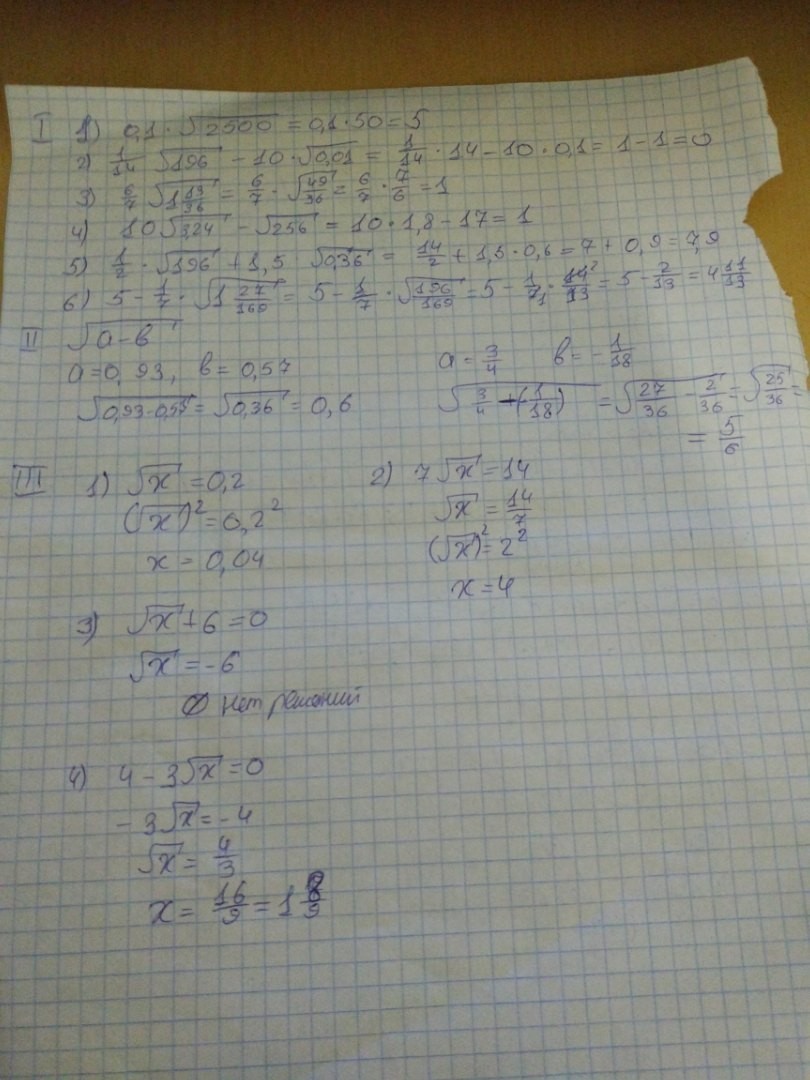 I 1) 0,1 · √2500 = 0,1 · 50 = 5
2) 1/14 √196 - 10 · √0,01 = 1/14 · 14 - 10 · 0,1 = 1 - 1 = 0
3) 6/7 √1 13/36 = 6/7 · √49/36 = 6/7 · 7/6 = 1
4) 10√3,24 - √256 = 10 · 1,8 - 17 = 1
5) 1/2 · √196 + 1,5 √0,36 = 14/2 + 1,5 · 0,6 = 7 + 0,9 = 7,9
6) 5 - 1/7 · √1 27/169 = 5 - 1/7 · √196/169 = 5 - 1/7 · 14/13 = 5 - 2/13 = 4 11/13
II √a-в
a = 0,93, в = 0,57
√0,93-0,57 = √0,36 = 0,6
a = 3/4 в = -1/18
√3/4 -(-1/18) = √27/36 - 2/36 = √25/36 =
= 5/6
III 1) √x = 0,2
(√x)² = 0,2²
x = 0,04
2) 7√x = 14
√x = 14/7
(√x)² = 2²
x = 4
3) √x + 6 = 0
√x = -6
Ø нет решений
4) 4 - 3√x = 0
- 3√x = -4
√x = 4/3
x = 16/9 = 1